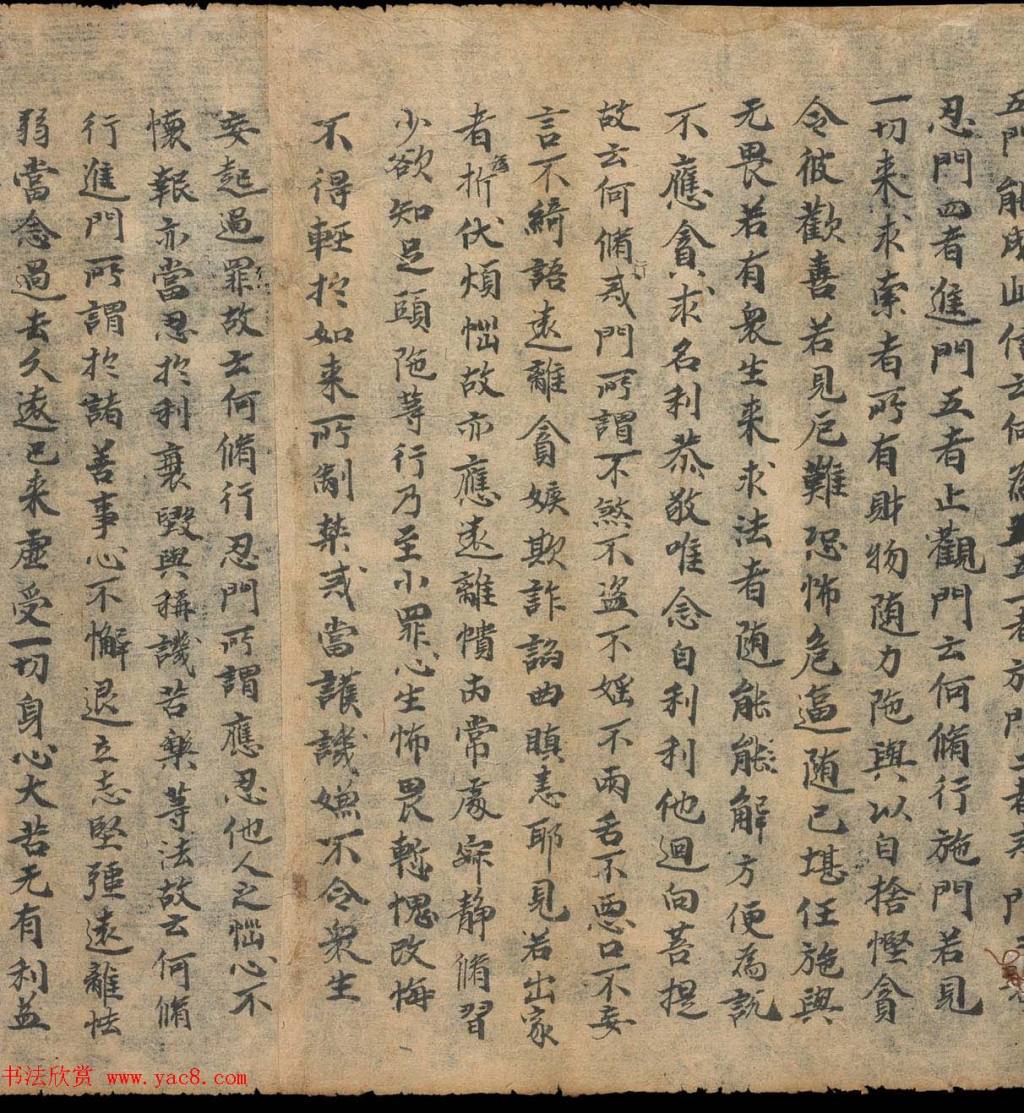 五門能成此信云何為五一者施門二者戒門
忍門四者進門五者止觀門云何脩行施門若見
一切来求索者所有財物随力施與以自捨慳貪
令彼歡喜若見厄難恐怖危逼随己堪任施與
无畏若有衆生来求法者随能能解方便為説
不應貪求名利恭敬唯念自利利他迴向菩提
故云何脩行戒門所謂不煞不盗不婬不兩舌不惡口不妄
言不綺語遠離貪嫉欺詐諂曲瞋恚耶見若出家
者為折伏煩惱故亦應遠離憒丙常處寂静脩習
少欲知足頭陁等行乃至小罪心生怖畏慙愧改悔
不得輕扵如来所制禁戒當護譏嫌不令衆生
妄起過罪故云何脩行忍門所謂應忍他人之惱心不
懷報亦當忍扵利衰毀與稱譏苦樂等法故云何脩
行進門所謂扵諸善事心不懈退立志堅强遠離怯
弱當念過去久遠已来虚受一切身心大苦无有利益
书法欣赏 www.yac8.com